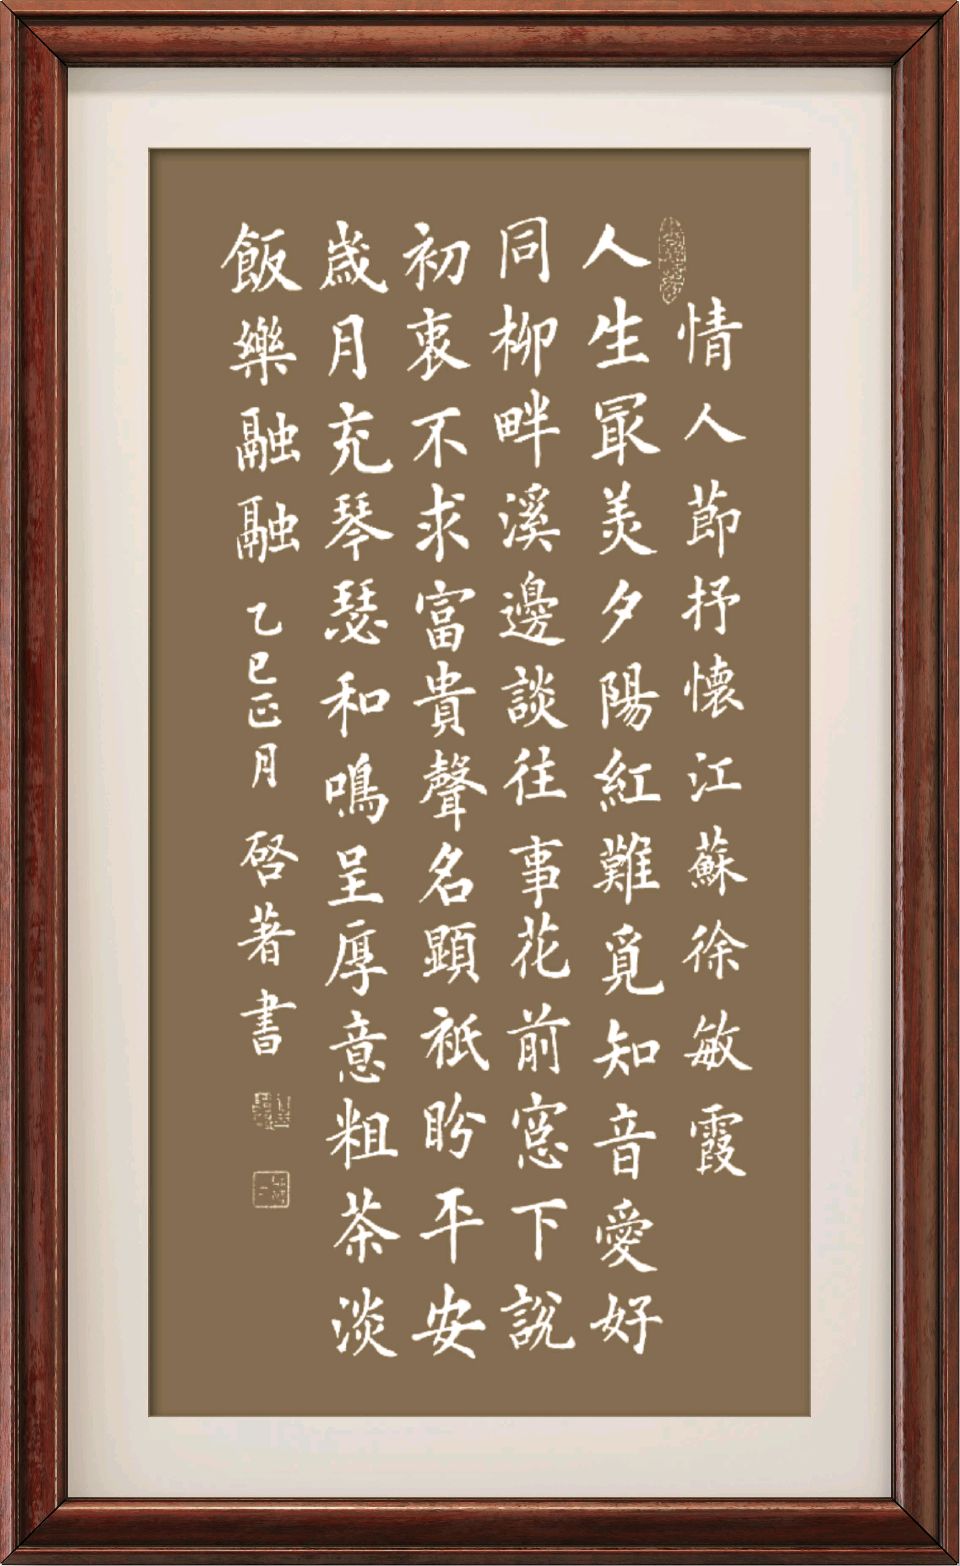 情人節抒懷江蘇徐敏霞
人生最美夕陽紅難覓知音愛好
同柳畔溪邊談往事花前窓下說
初衷不求富貴聲名顯祇盼平安
歲月充琴瑟和鳴呈厚意粗茶淡
飯樂融融乙巳正月啓著書